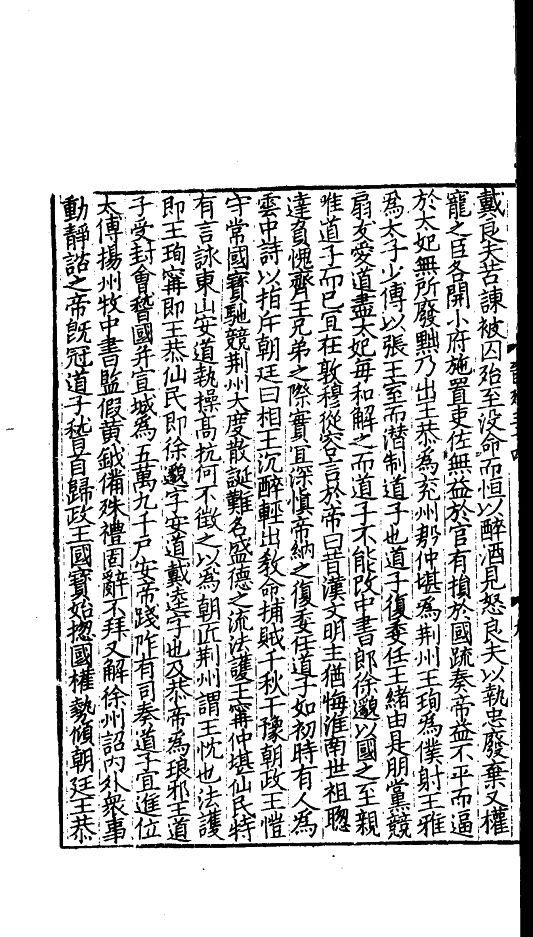 戴良夫苦諫被囚殆至没命而恒以醉酒見怒良夫以執忠廢棄又權
寵之臣各開小府施置吏佐無益於官有損於國疏奏帝益不平而逼
於太妃無所廢黜乃出王恭為兖州殷仲堪為荆州王珣為僕射王雅
為太子少傅以張王室而潜制道子也道子復委任王緒由是朋黨競
扇友愛道盡太妃每和解之而道子不能改中書郎徐邈以國之至親
唯道子而已宜在敦穆從容言於帝曰昔漢文明主猶悔淮南世祖聦
達負愧齊王兄弟之際實宜深慎帝納之復委任道子如初時有人為
雲中詩以指斥朝廷曰相王沉醉輕出敎命捕賊千秋干豫朝政王愷
守常國寳馳競荆州大度散誕難名盛德之流法護王甯仲堪仙民特
有言詠東山安道執操髙抗何不徵之以為朝近荆州謂王忱也法護
即王珣甯即王恭仙民即徐邈字安道戴逵字也及恭帝為琅邪王道
子受封會稽國并宣城為五萬九千戸安帝踐阼有司奏道子宜進位
太傅揚州牧中書監假黄鉞備殊禮固辭不拜又解徐州詔内外衆事
動靜諮之帝旣冠道子稽首歸政王國寳始揔國權勢傾朝廷王恭